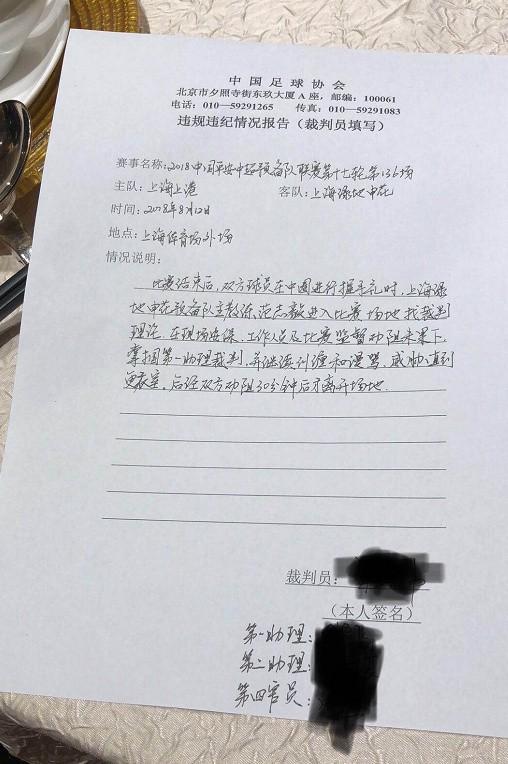 中国足球协会
北京市夕照寺街东玖大厦A座，邮编：100061
电话：010—59291265 传真：010—59291083
违规违纪情况报告（裁判员填写）
赛事名称：2018中国平安中超预备队联赛第十七轮第136场
主队：上海上港 客队：上海绿地申花
时间：2018年8月12日
地点：上海体育场外场
情况说明：
比赛结束后，双方球员在中圈进行握手礼时，上海绿
地申花预备队主教练范志毅进入比赛场地找裁判
理论，在现场安保、工作人员及比赛监督劝阻未果下，
掌掴第一助理裁判，并继续纠缠和谩骂，威胁直到
更衣室，后经双方劝阻30分钟后才离开场地
裁判员：
（本人签名）
第一助理：
第二助理：
第四官员：